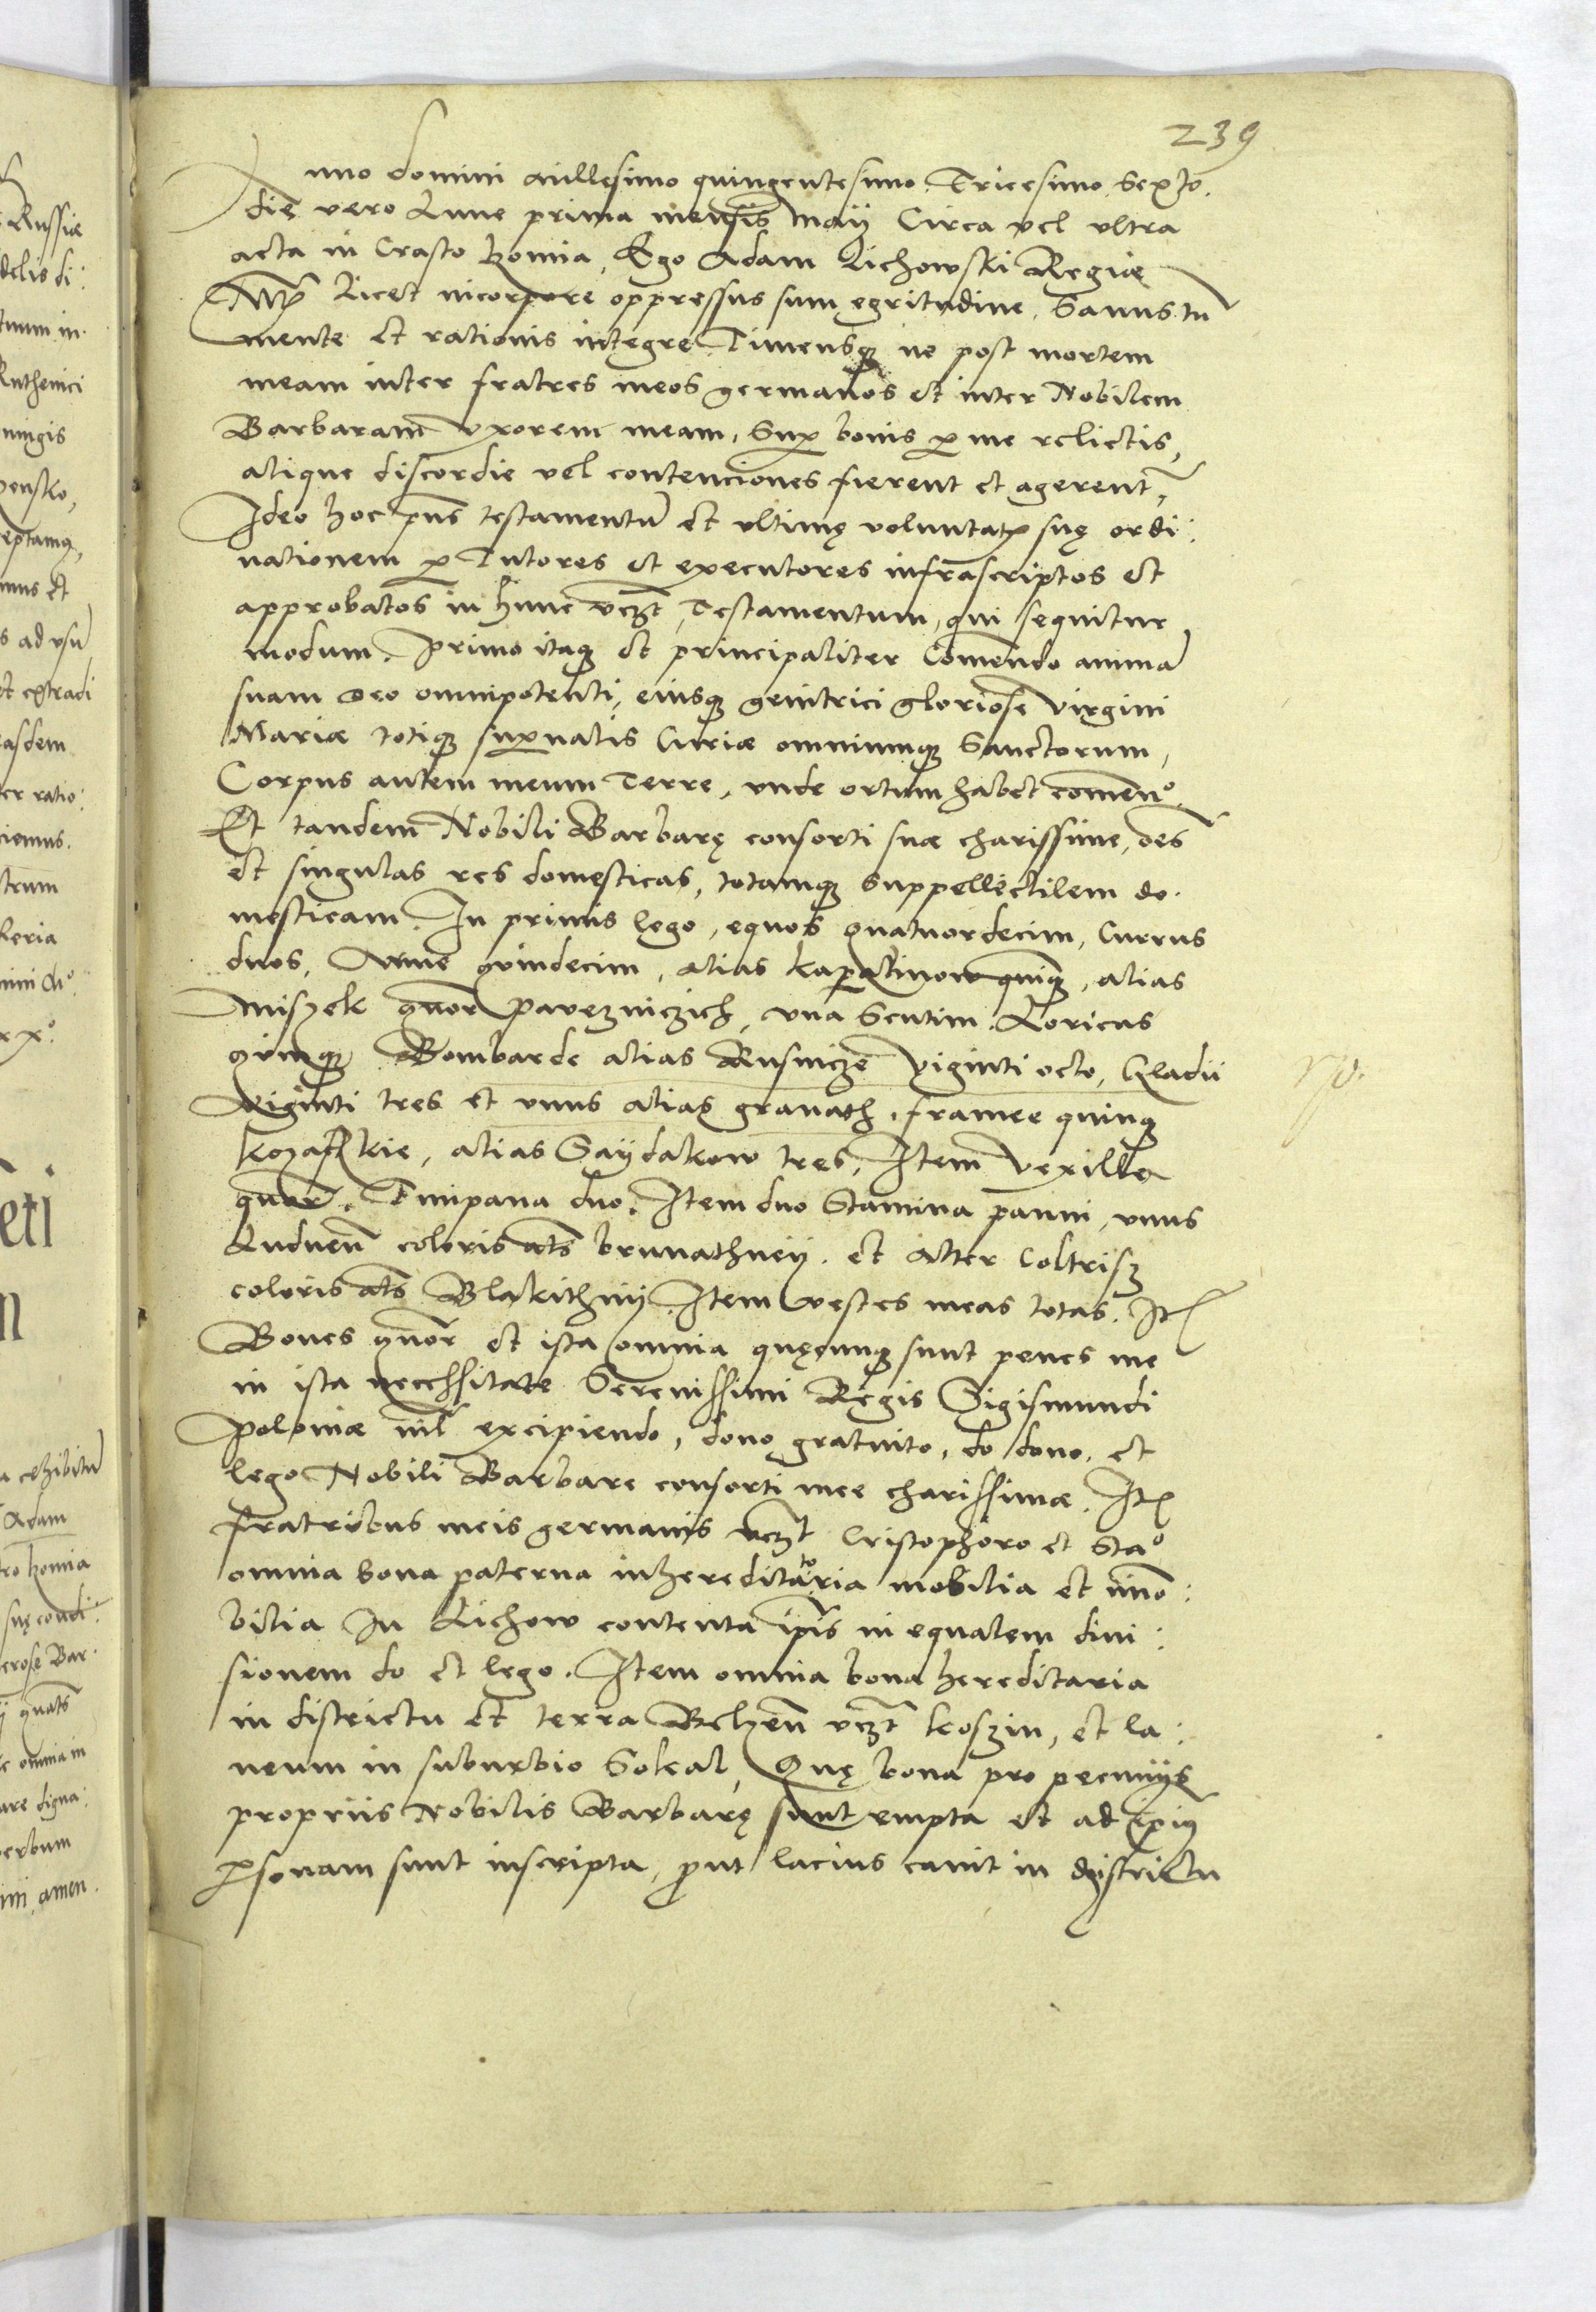 239
Anno domini millesimo quingentesimo Tricesimo Sexto.
die vero Lune prima mensis Maij Circa vel ultra
acta in Crasto Komia, Ego Adam Lichowski Regiæ
Licet in corpore oppressus sum egritudine, Sanus tn̄
mente et rationis integre Timensq; ne post mortem
meam inter fratres meos germanos et inter Nobilem
Barbaram uxorem meam, Sup bonis p me relictis,
alique discordie vel contenciones fierent et agerent,
Ideo hoc pn̄s testamentū et ultimę voluntatꝭ suę ordi:
nationem p Tutores et executores infrascriptos et
approbatos in hunc vczt, Testamentum, qui sequitur
modum. Primo itaq; et principaliter Com̄endo animā
suam deo omnipotenti, eiusq; genitrici gloriose virgini
Mariæ totiq; supernalis Curiæ omniumq; Sanctorum,
Corpus autem meum Terre, unde ortum habet comen̄o.
Et tandem Nobili Barbarę consorti suæ charissime, oēs
et singulas res domesticas, totamq; suppellectilem do.
mesticam. In primis lego, equos quatuordecim, Currus
duos, Arme quindecim, alias kapalinow quinq;, alias
Miszek quor Pavezniczich, una Scutim. Loricas
quinq; Bombarde alias Rusnicze viginti octo, Gladii
viginti tres et unus alias granath, framee quinq;
kozaczkie, alias Saÿdakow tres, Item vexilla
quor. Timpana duo. Item duo Stamina panni, unus
Luduen̄ coloris al̄s brunathneÿ. et alter Coltrisz
coloris al̄s Blakithnÿ. Item vestes meas totas. Itē
Boves quor et ista omnia quęcunq; sunt penes me
in ista necessitate Serenissimi Regis Sigismundi
Poloniæ nil excipiendo, dono gratuito, do dono, et
lego Nobili Barbare consorti mee charissimæ. Itē
fratribus meis germanis vczt Cristophoro et Stao
omnia bona paterna inhereditatoria mobilia et im̄o:
bilia In Lichow contenta ip̄is in equalem divi:
sionem do et lego. Item omnia bona hereditaria
in districtu et terra Belzen̄ vczt koszin, et la:
neum in suburbio Sokal, Quę bona pro pecunijs
propriis Nobilis Barbarę sunt empta et ad ip̄ius
psonam sunt inscripta, put lacius canit in districtu
Russiæ
delis di:
Ruthenici
ningis
s ad usū
et extradi
asdem
er ratio:
Adam
tro komia
suę condi:
erose Bar.
omnia in
are digna:
amen.